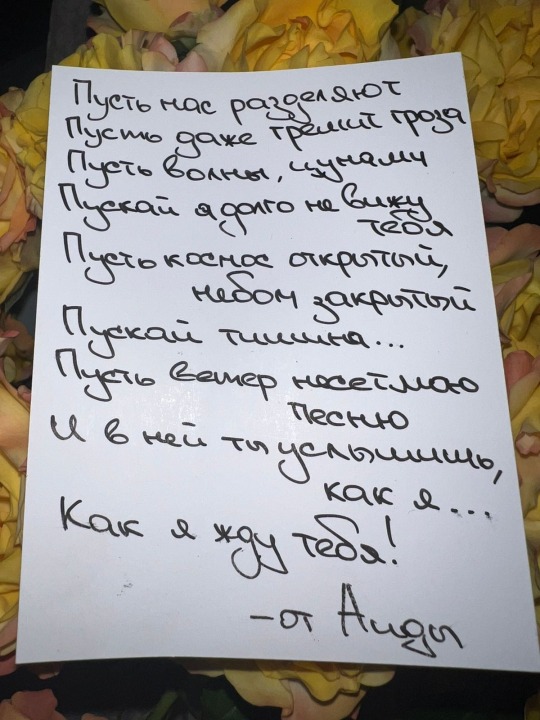 Пусть нас разделяют
Пусть даже гремит гроза
Пусть волны, цунами
Пускай я долго не вижу
тебя
Пусть космос открытый,
небом закрытый
Пускай тишина...
Пусть ветер несет мою
песню
И в ней ты услышишь,
как я...
Как я жду тебя!
-от Аиды